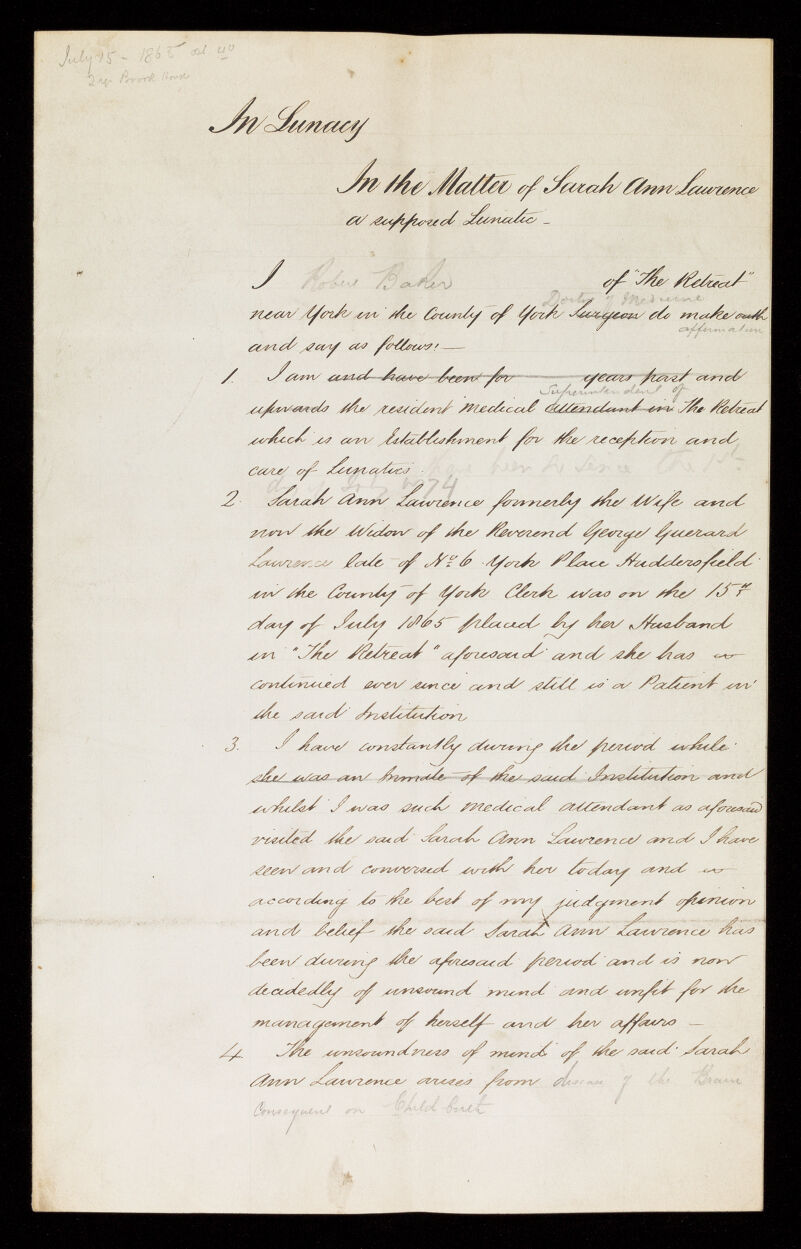 July 15 - 1865
In Lunacy
In the Matter of Sarah Ann Lawrence
a supposed Lunatic -
I Robert Baker of "The Retreat"
Doctor of Medicine
near York in the County of York Surgeon do make oath
affirmation
and say as follows:—
1. I am and have been for years past and
Superintendent of
upwards the resident medical attendant in The Retreat
which is an Establishment for the reception and
care of Lunatics. have been so since the 1st
day of 74
2. Sarah Ann Lawrence formerly the Wife and
now the Widow of the Reverend George Guerard
Lawrence late of No. 6 York Place Huddersfield
in the County of York Clerk was on the 15th
day of July 1865 placed by her Husband
in "The Retreat" aforesaid and she has
continued ever since and still is a Patient in
the said Institution
3. I have constantly during the period while
she was an Inmate of the said Institution and
whilst I was such medical attendant as aforesaid
visited the said Sarah Ann Lawrence and I have
seen and conversed with her today and
according to the best of my judgment opinion
and belief the said Sarah Ann Lawrence has
been during the aforesaid period and is now
decidedly of unsound mind and unfit for the
management of herself and her affairs —
4 The unsoundness of mind of the said Sarah
Ann Lawrence arises from disease of the Brain
Consequent on Child birth